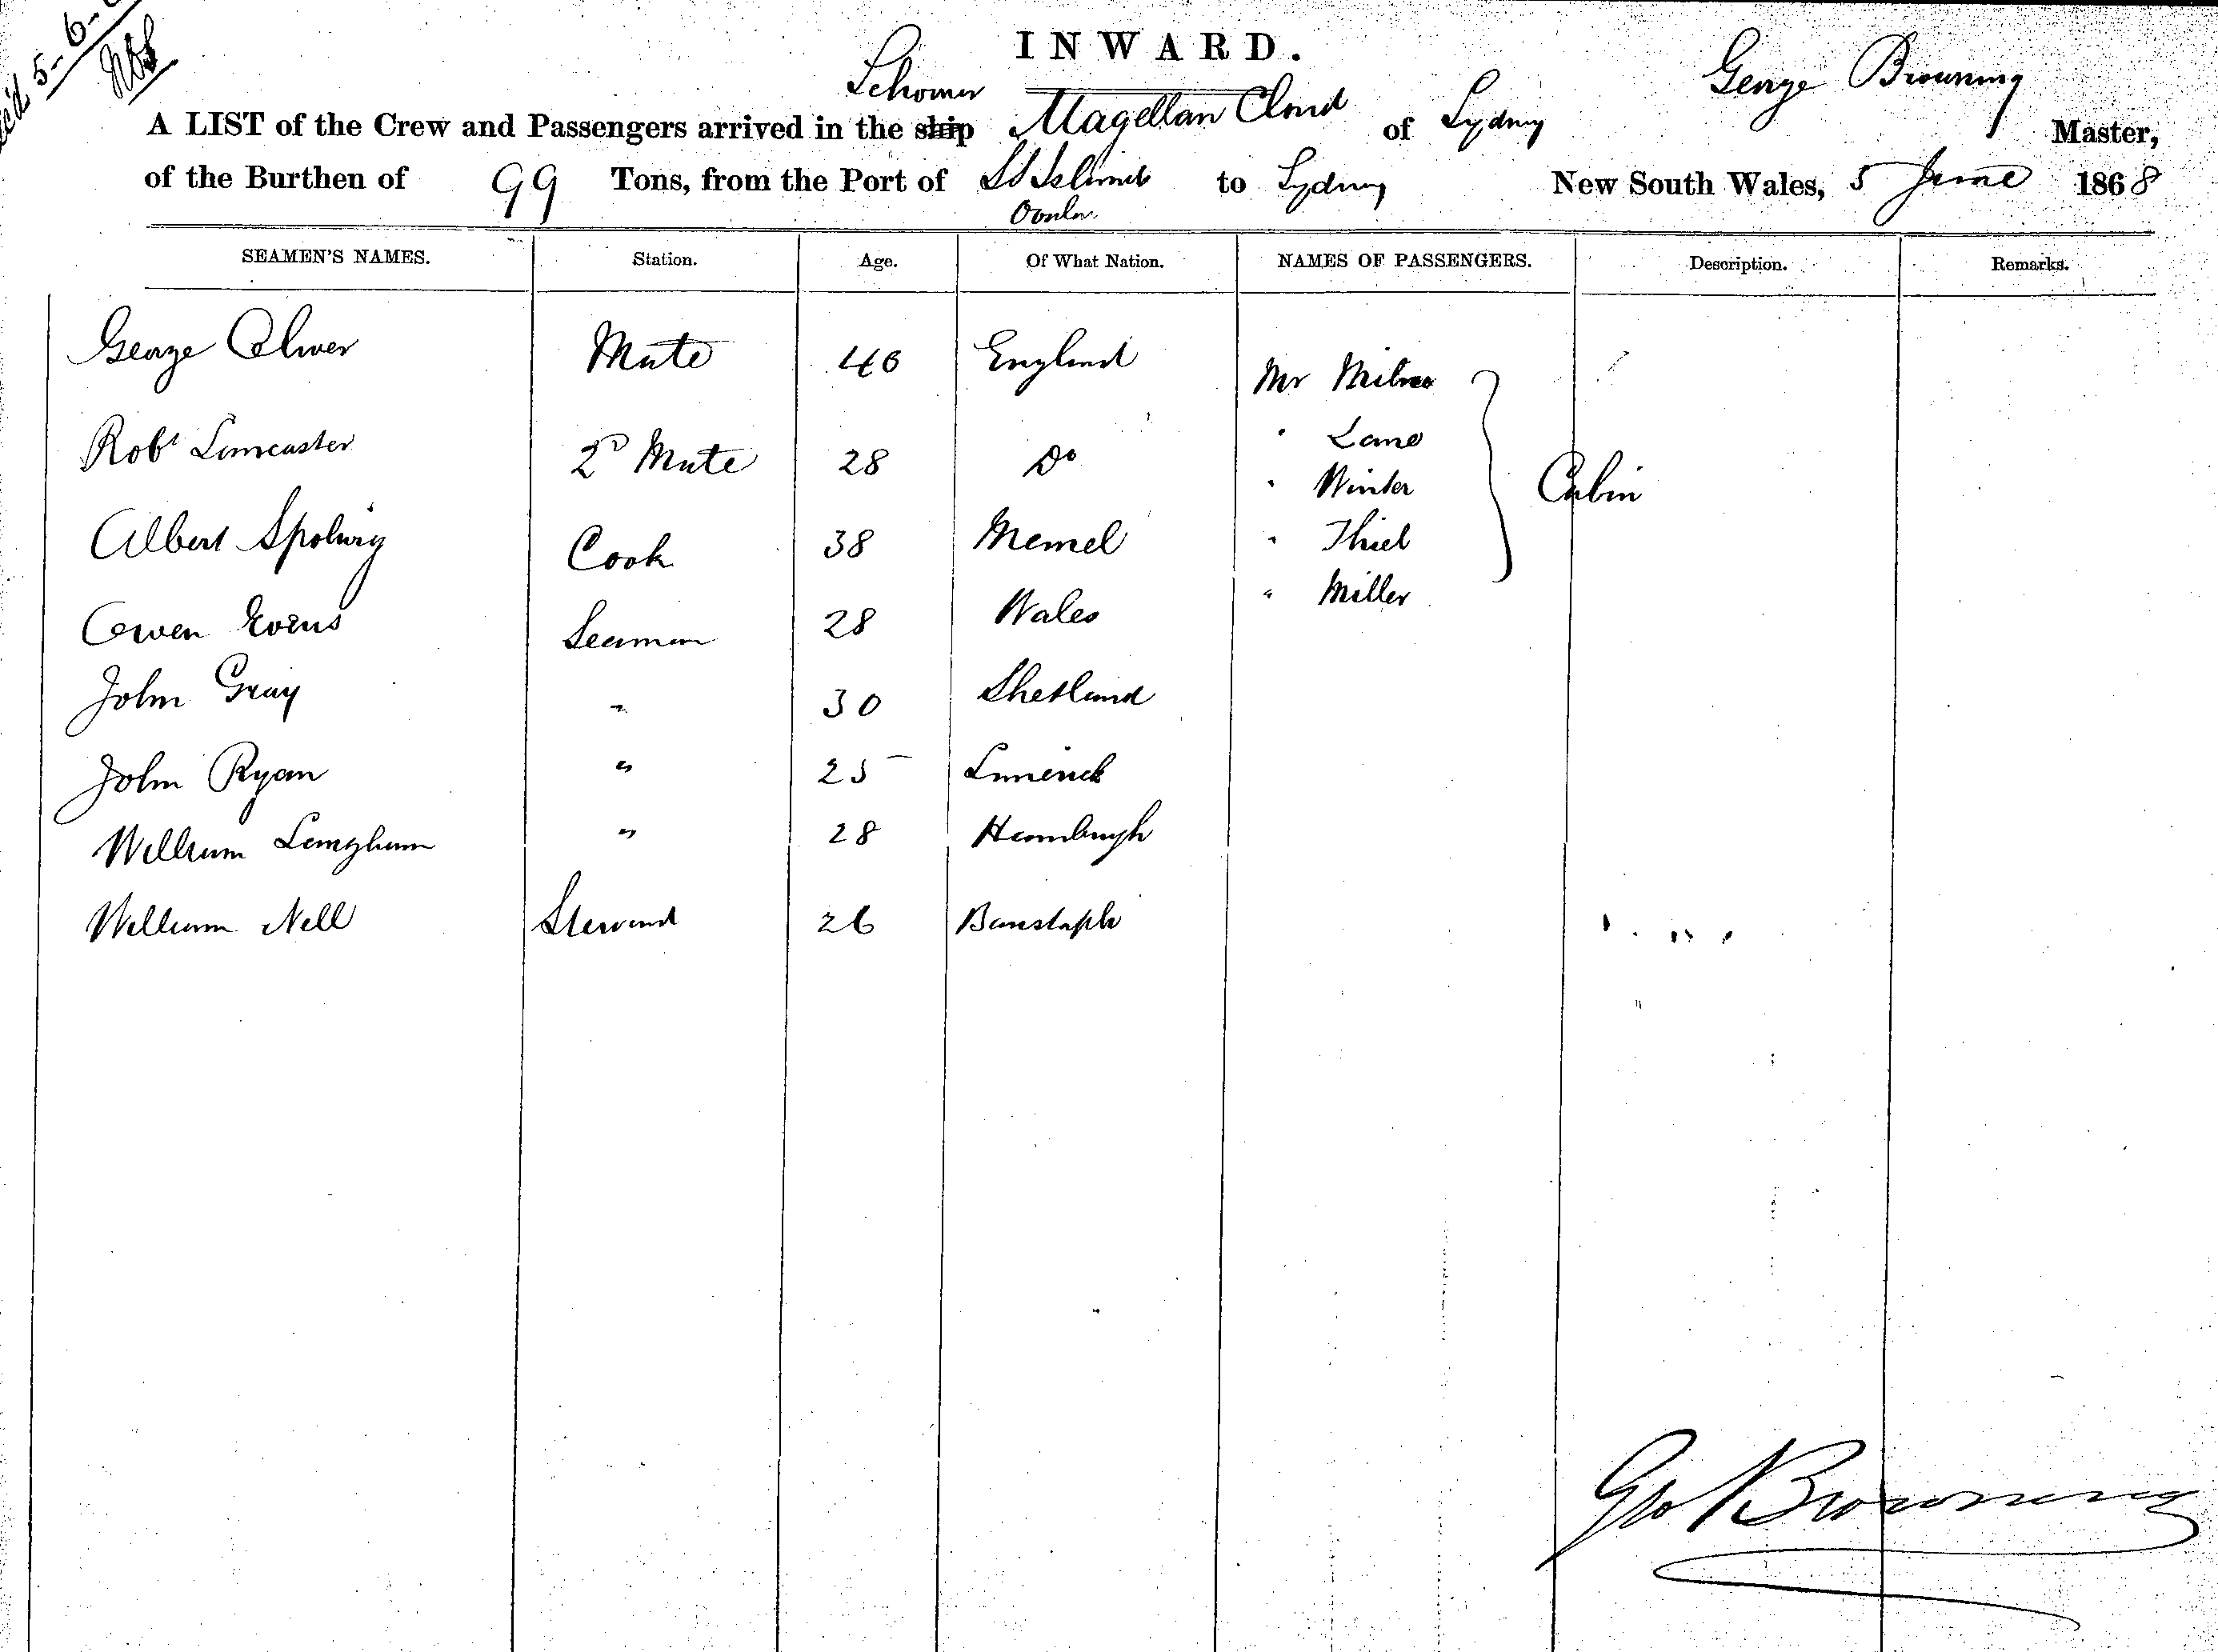 5-6-
INWARD.
Schooner
George Browning
A LIST of the Crew and Passengers arrived in the ship Magellan Cloud of Sydney Master,
of the Burthen of 99 Tons, from the Port of SS Islands to Sydney New South Wales, 5 June 1868
SEAMEN'S NAMES. Station. Age. Of What Nation. NAMES OF PASSENGERS. Description. Remarks.
George Oliver Mate 40 England Mr Milne
Robt Lancaster 2D Mate 28 Do " Lane
" Winter Cabin
Albert Spolwig Cook 38 Memel " Thiel
Owen Evens Seaman 28 Wales " Miller
John Gray " 30 Shetland
John Ryan " 25 Limerick
William Langham " 28 Hamburgh
William Nell Steward 26 Banstaple
Geo Browning